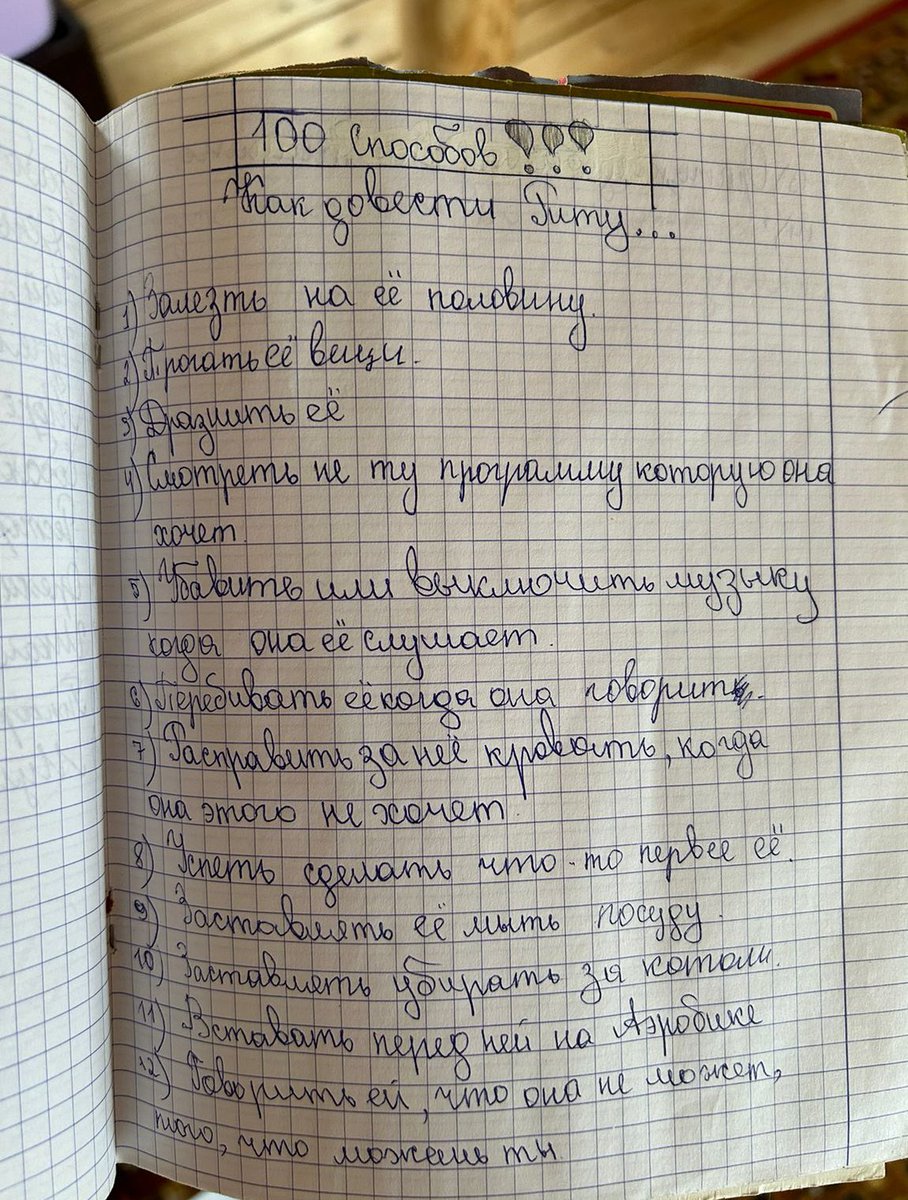 100 способов !!!
Как довести Риту...
1) Залезть на её половину.
2) Трогать её вещи.
3) Дразнить её
4) Смотреть не ту программу которую она
хочет.
5) Убавить или выключить музыку
когда она её слушает.
6) Перебивать её когда она говорит.
7) Расправить за неё кровать, когда
она этого не хочет.
8) Успеть сделать что-то первее её.
9) Заставлять её мыть посуду.
10) Заставлять убирать за котом.
11) Вставать перед ней на Аэробике
12) Говорить ей, что она не может,
того, что можешь ты